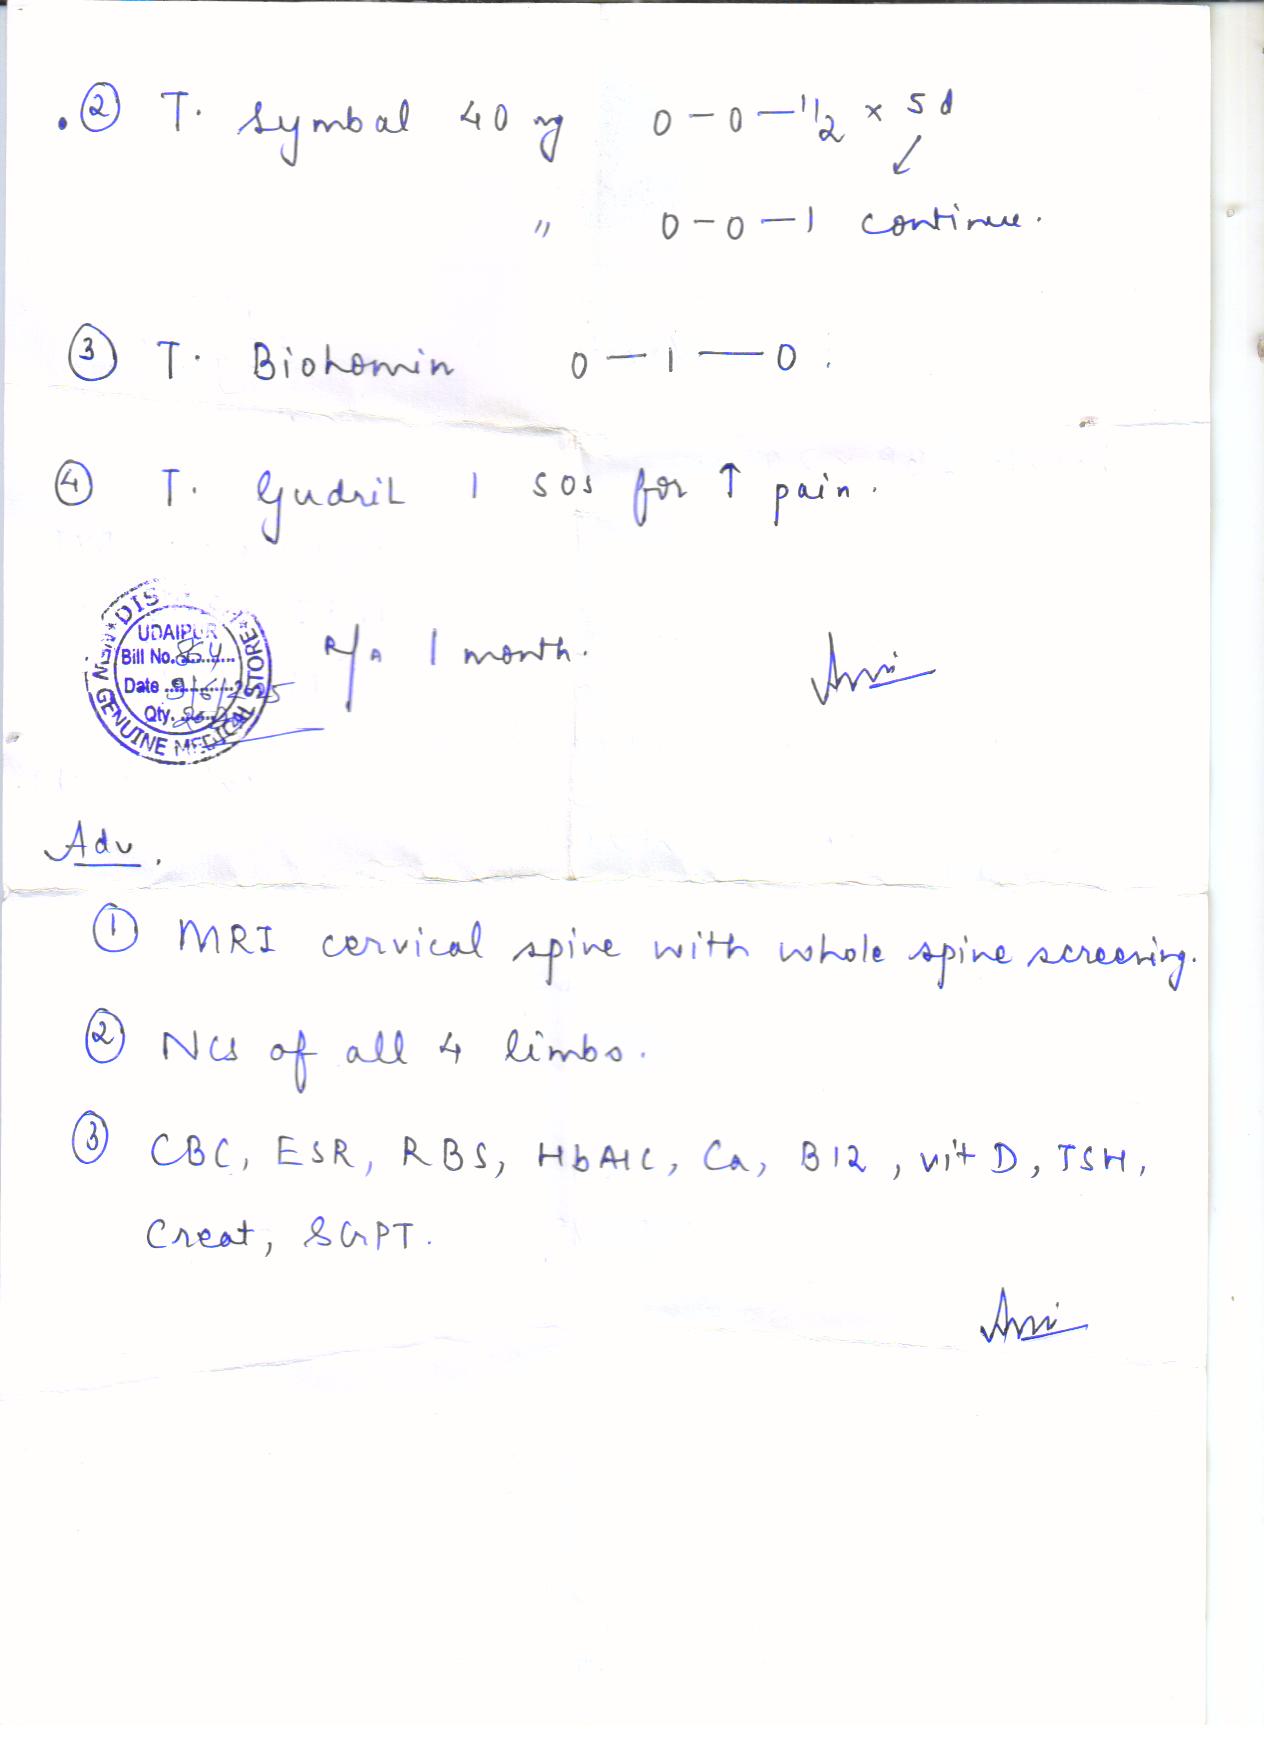 ② T. Symbal 40 mg 0-0-1/2 x 5d
↓
" 0-0-1 continue.
③ T. Biohomin 0-1-0.
④ T. Gudril 1 SOS for ↑ pain.
DIS
UDAIPUR
Bill No. 864
Date 9/6/2025
Qty.
NEW GENUINE MEDICAL STORE
R/A 1 month.
Adv.
① MRI cervical spine with whole spine screening.
② NCS of all 4 limbs.
③ CBC, ESR, RBS, HbA1C, Ca, B12, vit D, TSH,
Creat, SGPT.